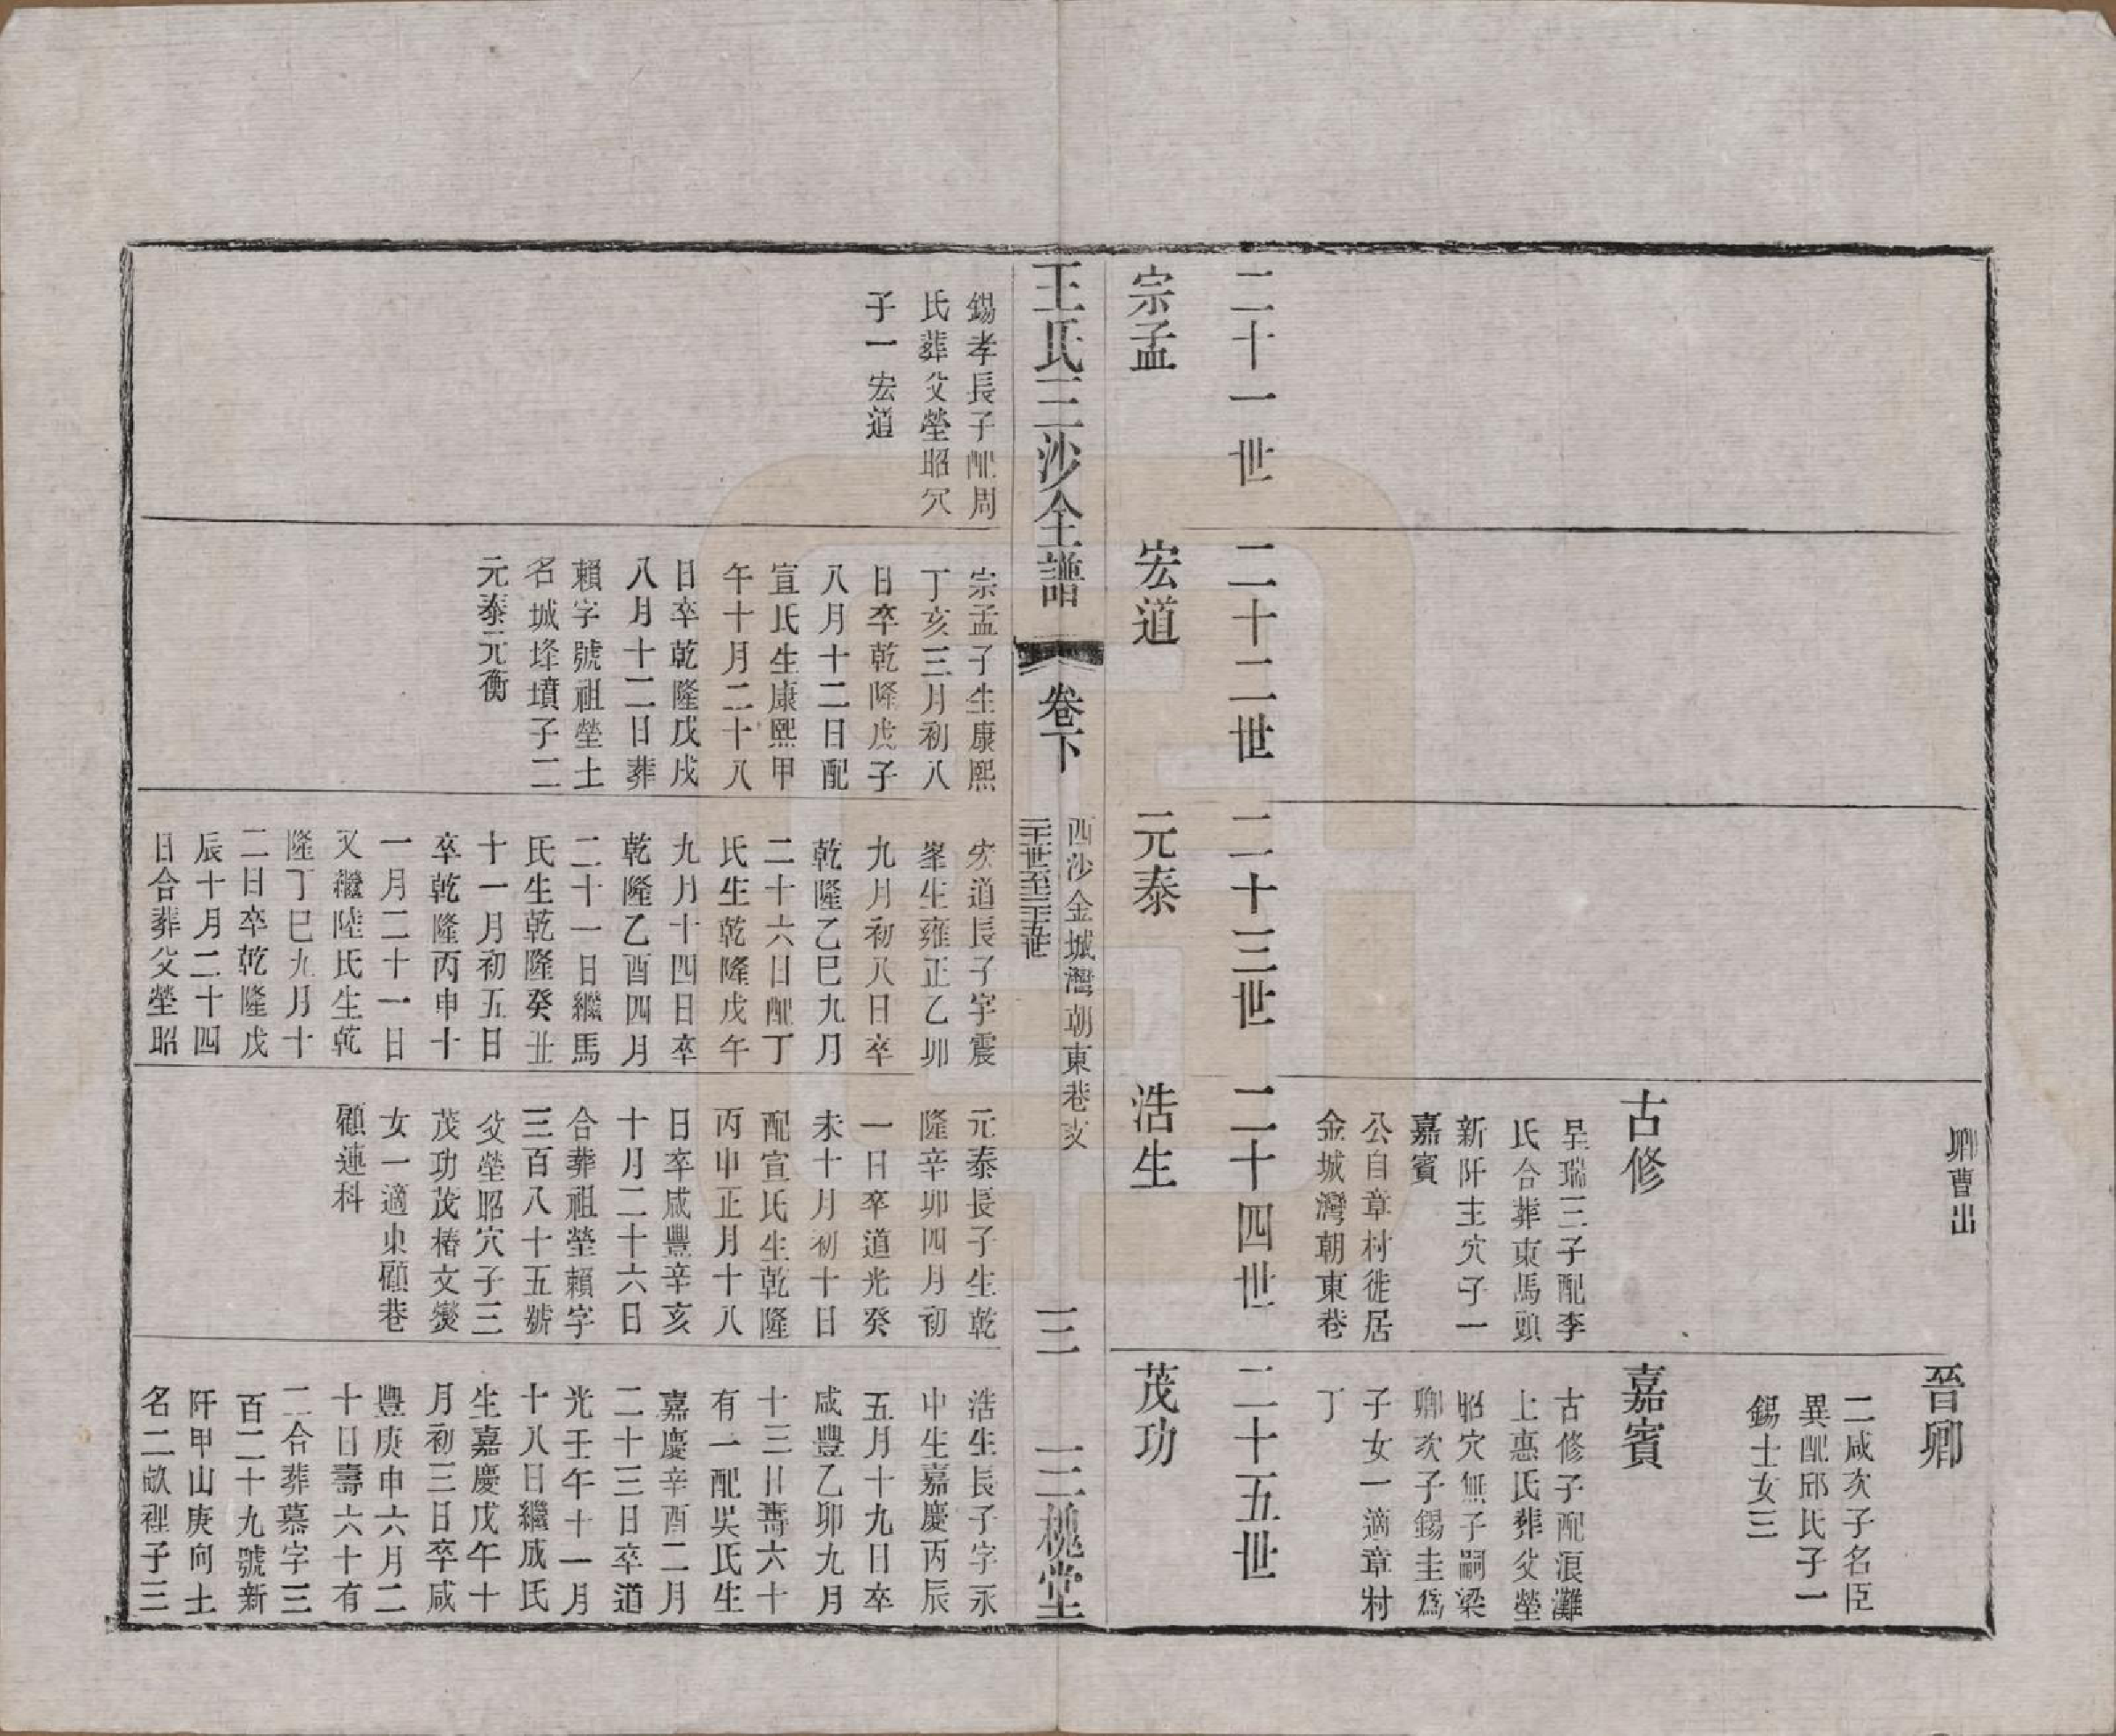 卿曹出
晉卿
二咸次子名臣
異配邱氏子一
錫士女三
古修
呈瑞三子配李
氏合葬東馬頭
新阡主穴子一
嘉賓
公自章村徙居
金城灣朝東巷
嘉賓
古修子配浪灘
上惠氏葬父塋
昭穴無子嗣梁
卿次子錫圭爲
子女一適章村
丁
二十一世
二十二世
二十三世
二十四世
二十五世
宗孟
宏道
元泰
浩生
茂功
王氏三沙全譜
卷下
西沙金城灣朝東巷支
二十一世至二十五世
三
三槐堂
錫孝長子配周
氏葬父塋昭穴
子一宏道
宗孟子生康熙
丁亥三月初八
日卒乾隆戊子
八月十二日配
宣氏生康熙甲
午十月二十八
日卒乾隆戊戌
八月十二日葬
賴字號祖塋土
名城垾墳子二
元泰元衡
宏道長子字震
峯生雍正乙卯
九月初八日卒
乾隆乙巳九月
二十六日配丁
氏生乾隆戊午
九月十四日卒
乾隆乙酉四月
二十一日繼馬
氏生乾隆癸丑
十一月初五日
卒乾隆丙申十
一月二十一日
又繼陸氏生乾
隆丁巳九月十
二日卒乾隆戊
辰十月二十四
日合葬父塋昭
元泰長子生乾
隆辛卯四月初
一日卒道光癸
未十月初十日
配宣氏生乾隆
丙申正月十八
日卒咸豐辛亥
十月二十六日
合葬祖塋賴字
三百八十五號
父塋昭穴子三
茂功茂椿文燮
女一適東顧巷
顧連科
浩生長子字永
中生嘉慶丙辰
五月十九日卒
咸豐乙卯九月
十三日壽六十
有一配吳氏生
嘉慶辛酉二月
二十三日卒道
光壬午十一月
十八日繼成氏
生嘉慶戊午十
月初三日卒咸
豐庚申六月二
十日壽六十有
二合葬慕字三
百二十九號新
阡甲山庚向土
名二畝裡子三